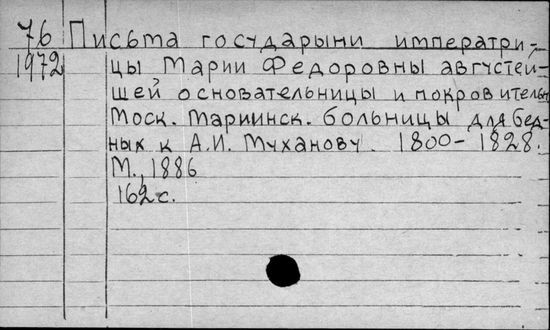 76 Письма государыни императри-
1972 цы Марии Федоровны августей-
шей основательницы и покровительн
Моск. Мариинск. больницы для бед-
ных к А.И. Муханову. 1800-1828.
М., 1886
162 с.